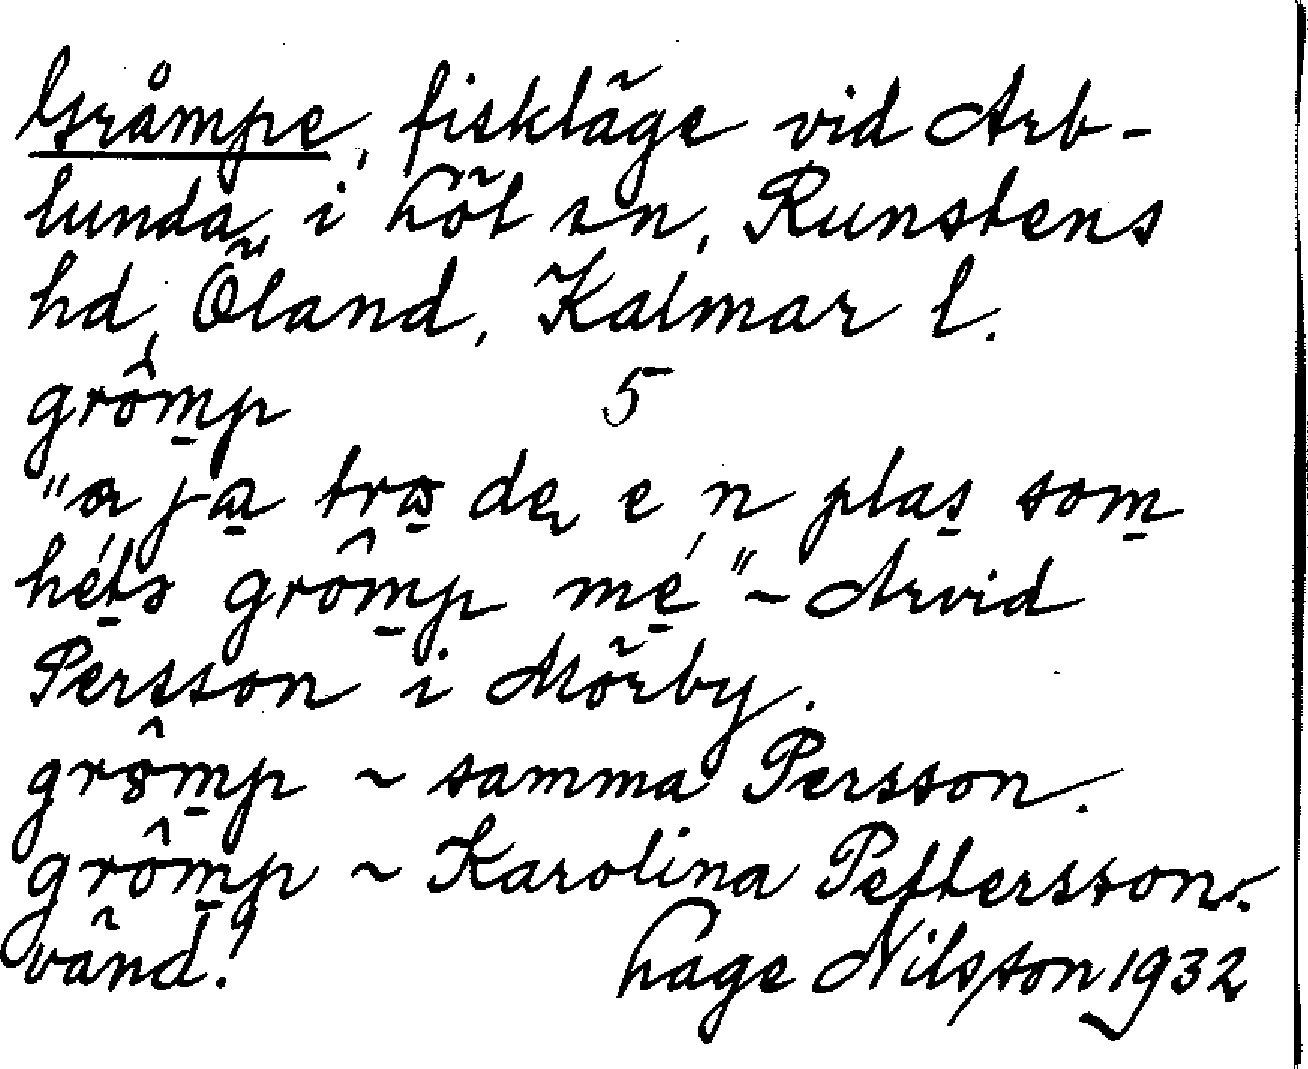 Gråmpe, fiskläge vid Arb-
lunda, i Löt sn, Runstens
hd, Öland, Kalmar l.
grômp 5
"a ja tros de e n plas som
héts grômp mé" ~ Arvid
Persson i Mörby.
grômp ~ samma Persson.
grômp ~ Karolina Pettersson.
vänd! Lage Nilsson 1932